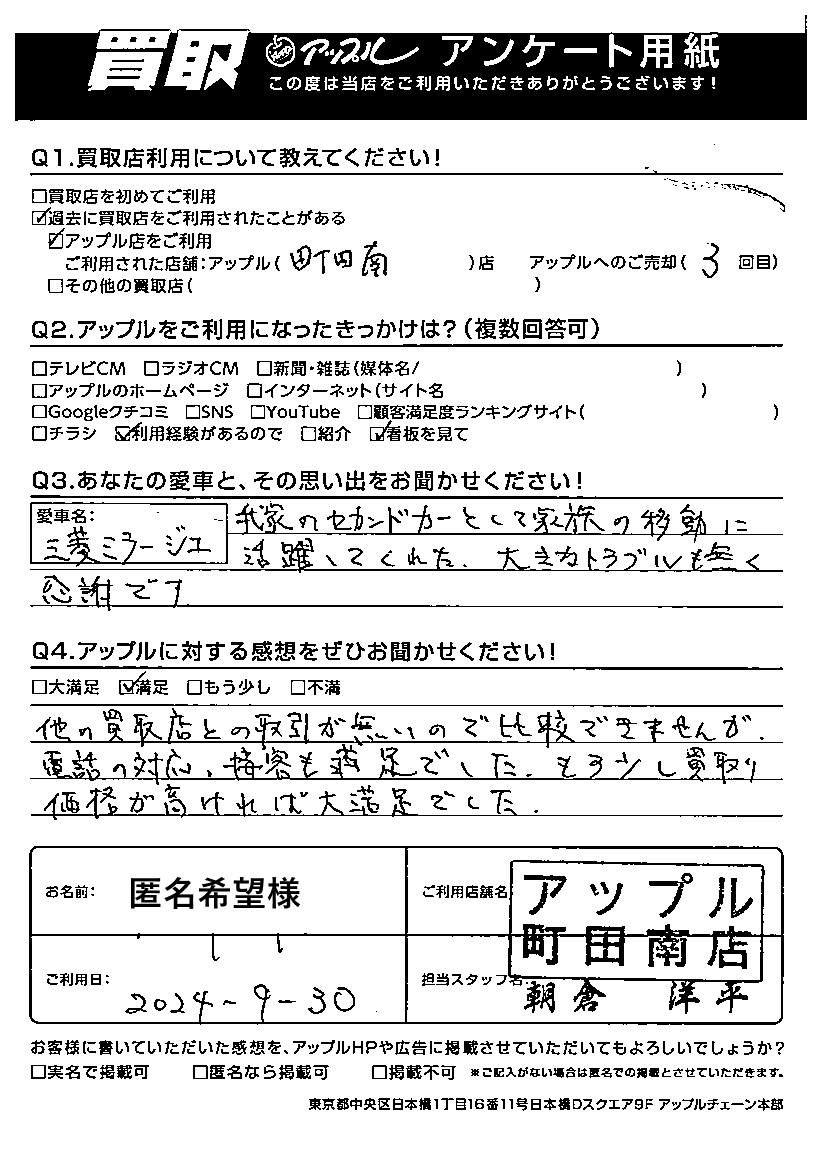 買取 アップル アンケート用紙
この度は当店をご利用いただきありがとうございます!
Q1.買取店利用について教えてください!
□買取店を初めてご利用
☑過去に買取店をご利用されたことがある
☑アップル店をご利用
ご利用された店舗:アップル( 町田南 )店 アップルへのご売却( 3 回目)
□その他の買取店( )
Q2.アップルをご利用になったきっかけは?(複数回答可)
□テレビCM □ラジオCM □新聞・雑誌(媒体名/ )
□アップルのホームページ □インターネット(サイト名 )
□Googleクチコミ □SNS □YouTube □顧客満足度ランキングサイト( )
□チラシ ☑利用経験があるので □紹介 ☑看板を見て
Q3.あなたの愛車と、その思い出をお聞かせください!
愛車名: 三菱ミラージュ 我家のセカンドカーとして家族の移動に
活躍してくれた。大きなトラブルも無く
感謝です
Q4.アップルに対する感想をぜひお聞かせください!
□大満足 ☑満足 □もう少し □不満
他の買取店との取引が無いので比較できませんが、
電話の対応、接客も満足でした。もう少し買取り
価格が高ければ大満足でした。
お名前: 匿名希望様 ご利用店舗名 アップル
町田南店
ご利用日: 2024-9-30 担当スタッフ名: 朝倉 洋平
お客様に書いていただいた感想を、アップルHPや広告に掲載させていただいてもよろしいでしょうか?
□実名で掲載可 □匿名なら掲載可 □掲載不可 ※ご記入がない場合は匿名での掲載とさせていただきます。
東京都中央区日本橋1丁目16番11号日本橋Dスクエア9F アップルチェーン本部